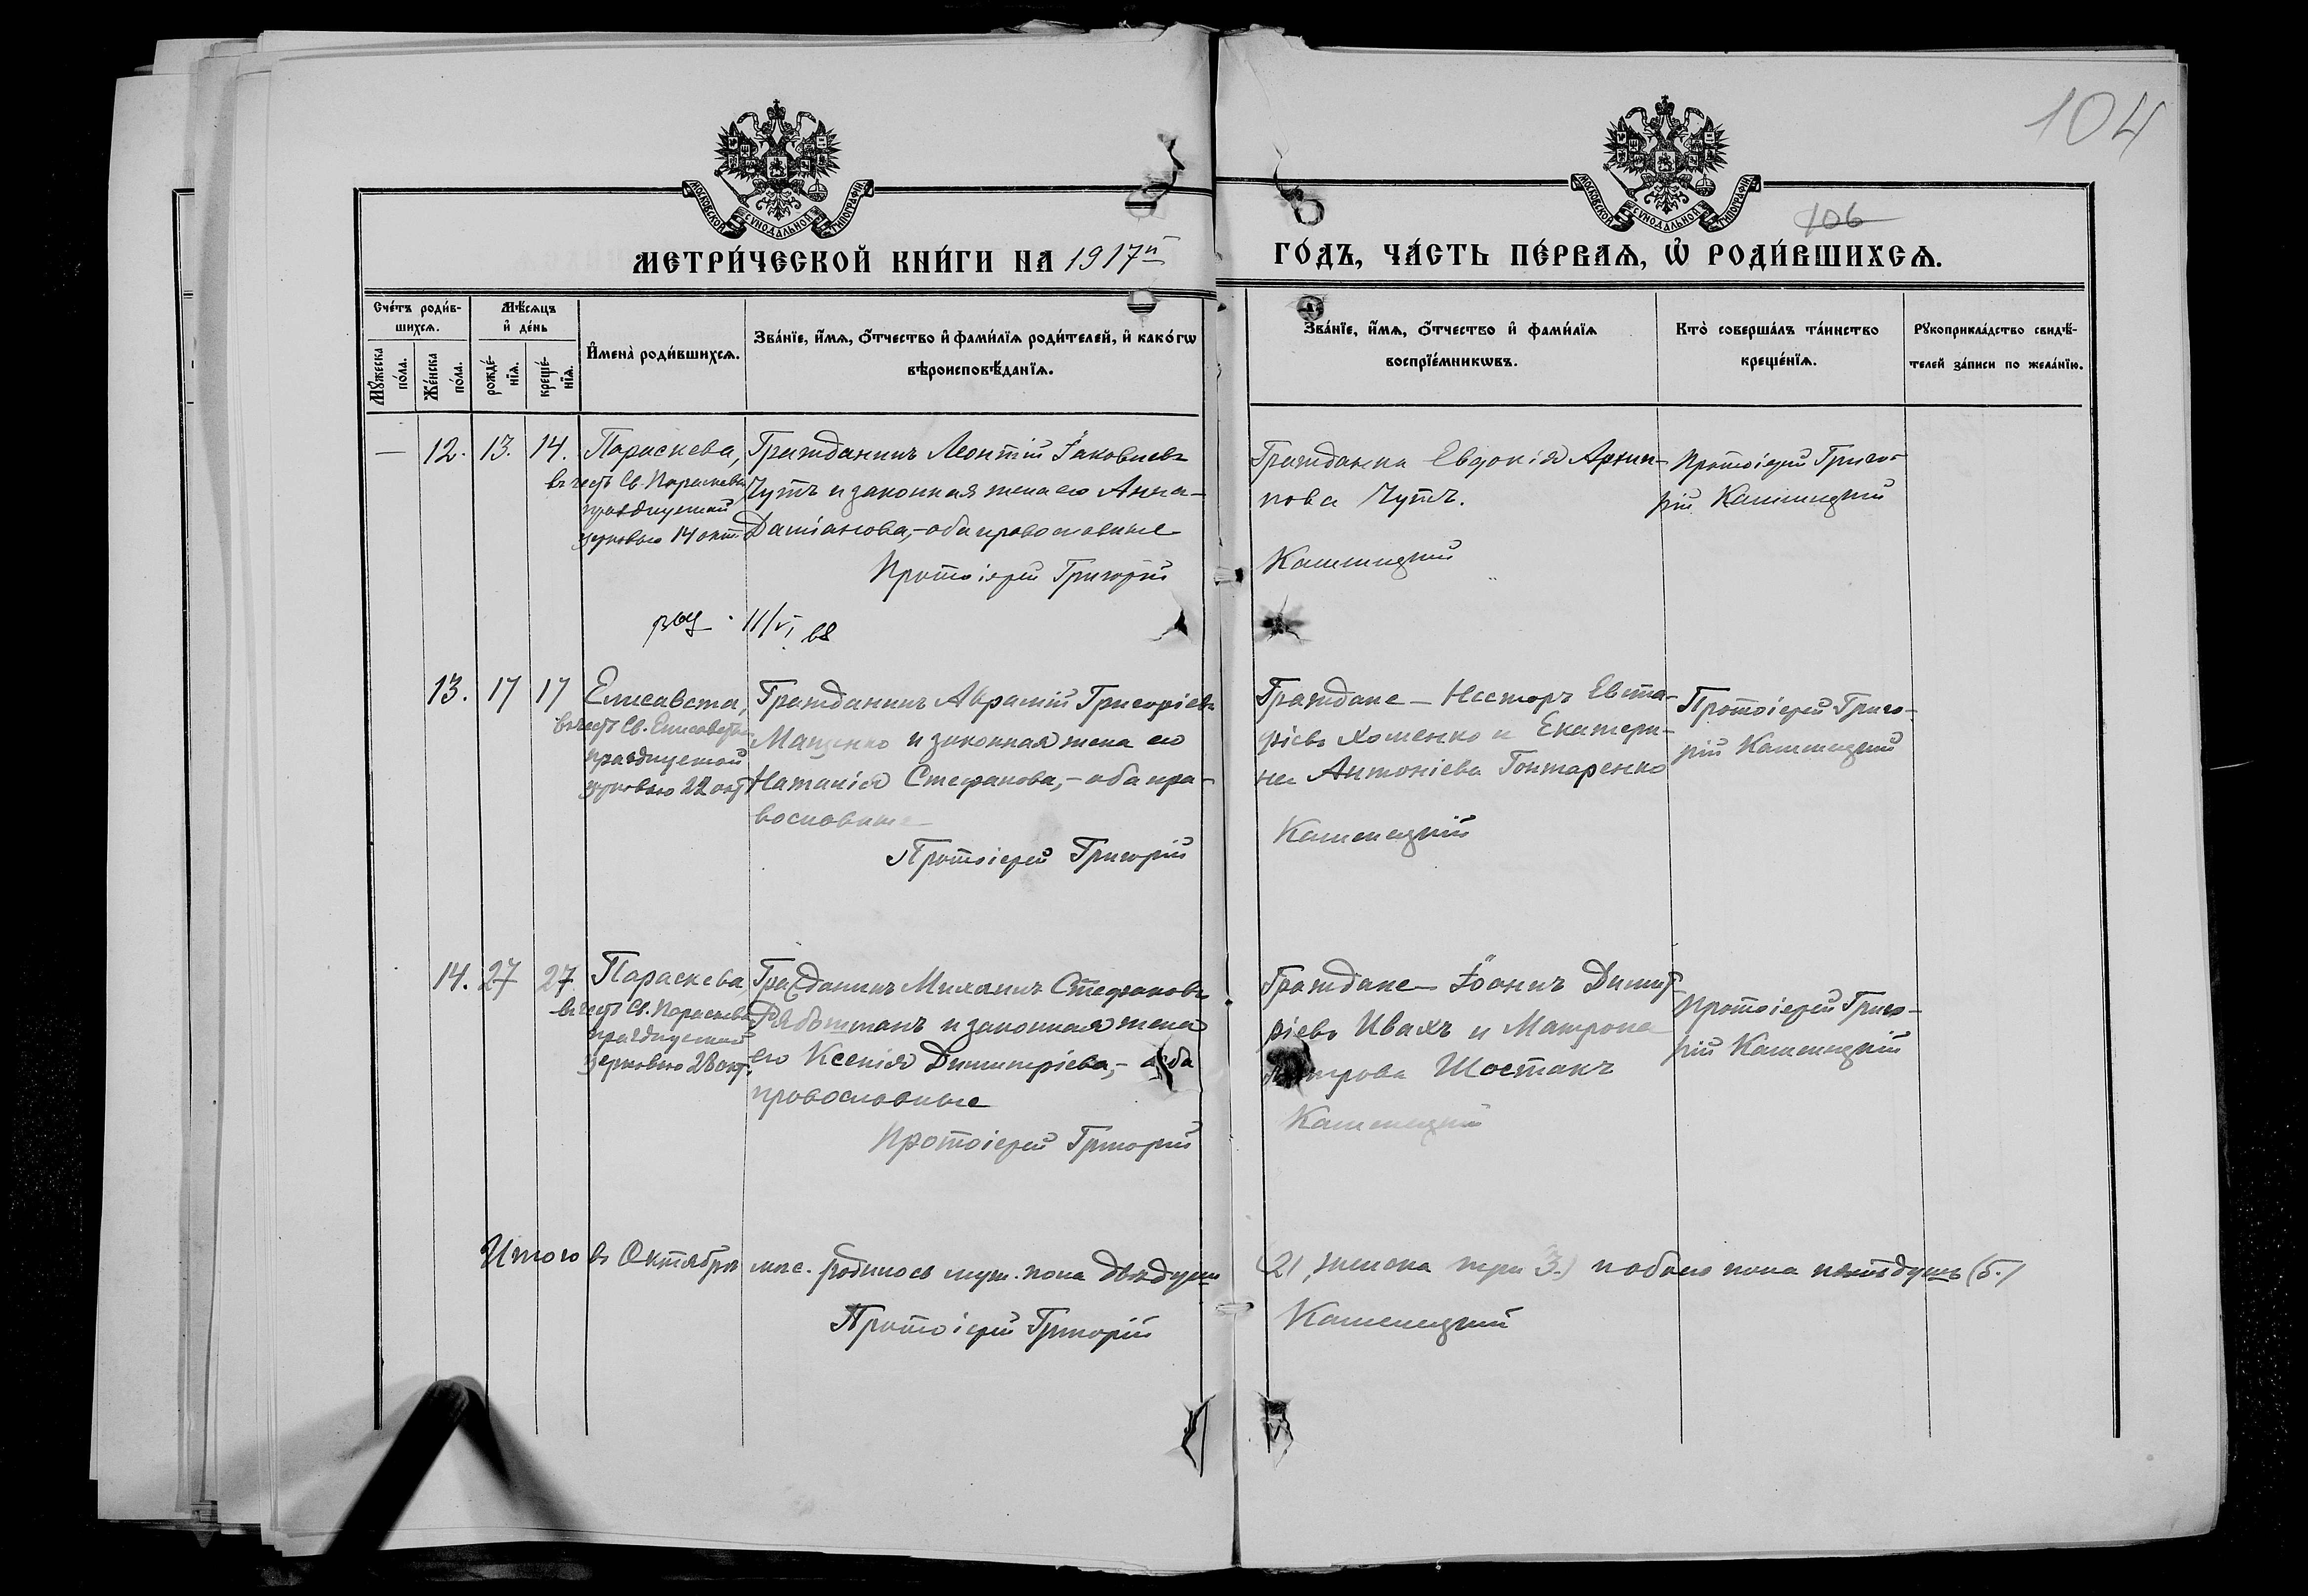 104
МОСКОВСКОЙ СУНОДАЛЬНОЙ ТИПОГРАФІИ
МОСКОВСКОЙ СУНОДАЛЬНОЙ ТИПОГРАФІИ
106
МЕТРИ́ЧЕСКОЙ КНИ́ГИ НА 1917й
ГО́ДЪ, ЧА́СТЬ ПЕ́РВАѦ, Ѡ҆ РОДИ́ВШИХСѦ.
Сче́тъ роди́в-
шихсѧ.
Мꙋ́жеска по́ла.
Же́нска по́ла.
Мѣ́сѧцъ
и҆ де́нь
рожде́-
нїѧ.
креще́-
нїѧ.
И҆мена̀ роди́вшихсѧ.
Зва́нїе, и҆́мѧ, ѻ҆́тчество и҆ фами́лїѧ роди́телей, и҆ како́гѡ
вѣроисповѣ́данїѧ.
Зва́нїе, и҆́мѧ, ѻ҆́тчество и҆ фами́лїѧ
воспрїе́мникѡвъ.
Кто̀ соверша́лъ та́инство
креще́нїѧ.
Рꙋкоприкла́дство свидѣ́-
телей за́писи по жела́нїю.
— 12. 13. 14. Параскева,
въ честь Св. Параскевы
празднуемой
церковью 14 окт.
Гражданинъ Леонтій Іаковлевъ
Чутъ и законная жена его Анна
Даміанова,- оба православные
Протоіерей Григорій
Гражданка Евдокія Архип-
пова Чутъ.
Кашницкій
Протоіерей Григо-
рій Кашницкій
11/VI 68
13. 17 17 Елисавета,
въ честь Св. Елисаветы
празднуемой
церковью 22 окт
Гражданинъ Аврамій Григоріевъ
Маценко и законная жена его
Наталія Стефанова,- оба пра-
вославные
Протоіерей Григорій
Граждане — Несторъ Евста-
фіевъ Хоменко и Екатери-
на Антоніева Гонтаренко
Кашницкій
Протоіерей Григо-
рій Кашницкій
14. 27 27 Параскева,
въ честь Св. Параскевы
празднуемой
церковью 28 окт.
Гражданинъ Михаилъ Стефановъ
и законная жена
его Ксенія Димитріева,- оба
православные
Протоіерей Григорій
Граждане — Іоаннъ Димит-
ріевъ Ивахъ и Матрона
Петрова Шостакъ
Кашницкій
Протоіерей Григо-
рій Кашницкій
Итого въ Октябрѣ мѣс. родилось муж. пола двѣ души (2), женска три 3.) обоего пола пять душъ (5.)
Протоіерей Григорій Кашницкій